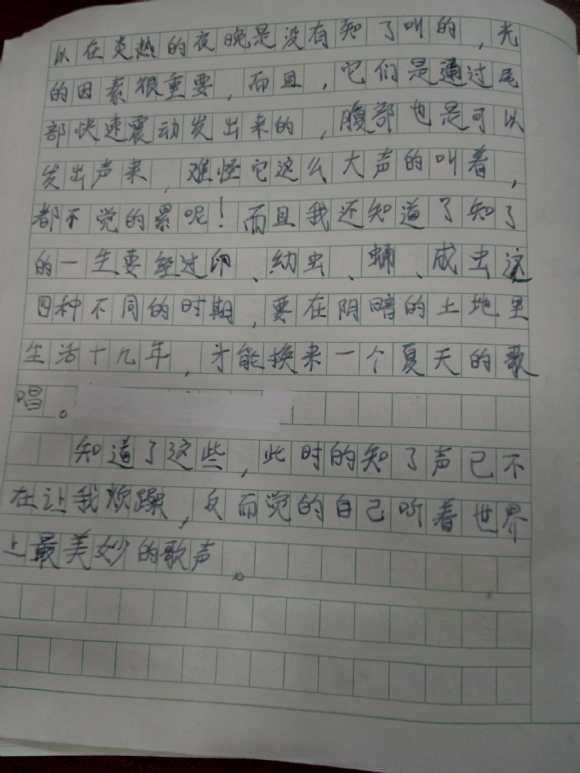 以在炎热的夜晚是没有知了叫的，光
的因素很重要，而且，它们是通过尾
部快速震动发出来的，腹部也是可以
发出声来，难怪它这么大声的叫着，
都不觉的累呢！而且我还知道了知了
的一生要经过卵、幼虫、蛹、成虫这
四种不同的时期，要在阴暗的土地里
生活十几年，才能换来一个夏天的歌
唱。
知道了这些，此时的知了声已不
在让我烦躁，反而觉的自己听着世界
上最美妙的歌声。